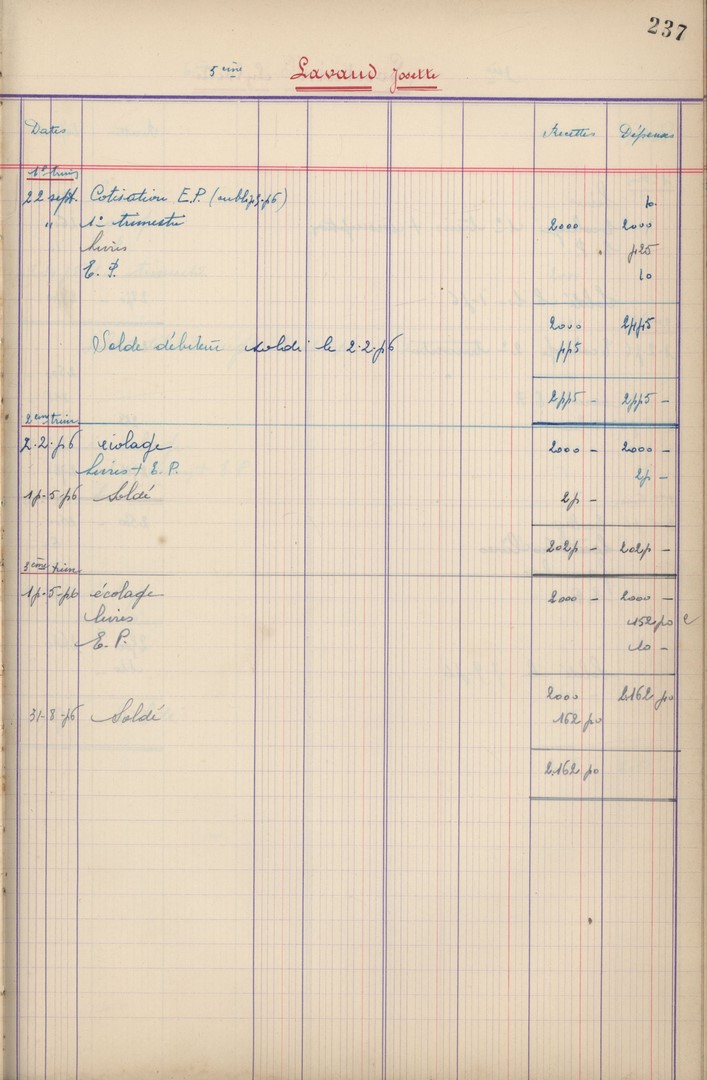 237
5ème Lavaud Josette
Dates Recettes Dépenses
1er trim
22 sept. Cotisation E.P. (oubli 75-76) 40
" 1er trimestre 2000 2000
livres 725
E. P. 10
2000 2775
Solde débiteur soldé le 2.2.76 775
2775 - 2775 -
2eme trim
2.2.76 écolage 2000 - 2000 -
livres + E.P. 27 -
17-5-76 Soldé 27 -
2027 - 2027 -
3ème trim
17-5-76 écolage 2000 - 2000 -
livres 152,70 c
E.P. 10 -
2000 2.162 70
31-8-76 Soldé 162 70
2.162 70